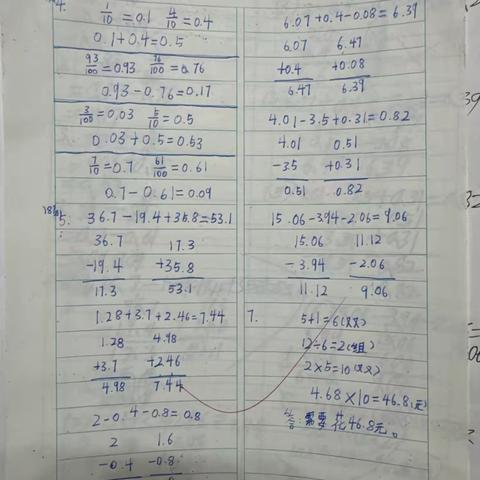 4.
1/10 = 0.1 4/10 = 0.4
0.1 + 0.4 = 0.5
93/100 = 0.93 76/100 = 0.76
0.93 - 0.76 = 0.17
3/100 = 0.03 5/10 = 0.5
0.03 + 0.5 = 0.53
7/10 = 0.7 61/100 = 0.61
0.7 - 0.61 = 0.09
5. 36.7 - 19.4 + 35.8 = 53.1
36.7 17.3
-19.4 +35.8
17.3 53.1
1.28 + 3.7 + 2.46 = 7.44
1.28 4.98
+3.7 +2.46
4.98 7.44
2 - 0.4 - 0.8 = 0.8
2 1.6
-0.4 -0.8
6.07 + 0.4 - 0.08 = 6.39
6.07 6.47
+0.4 +0.08
6.47 6.39
4.01 - 3.5 + 0.31 = 0.82
4.01 0.51
-3.5 +0.31
0.51 0.82
15.06 - 3.94 - 2.06 = 9.06
15.06 11.12
-3.94 -2.06
11.12 9.06
7. 5+1=6(双)
12÷6=2(组)
2×5=10(双)
4.68×10=46.8(元)
答:需要花46.8元。